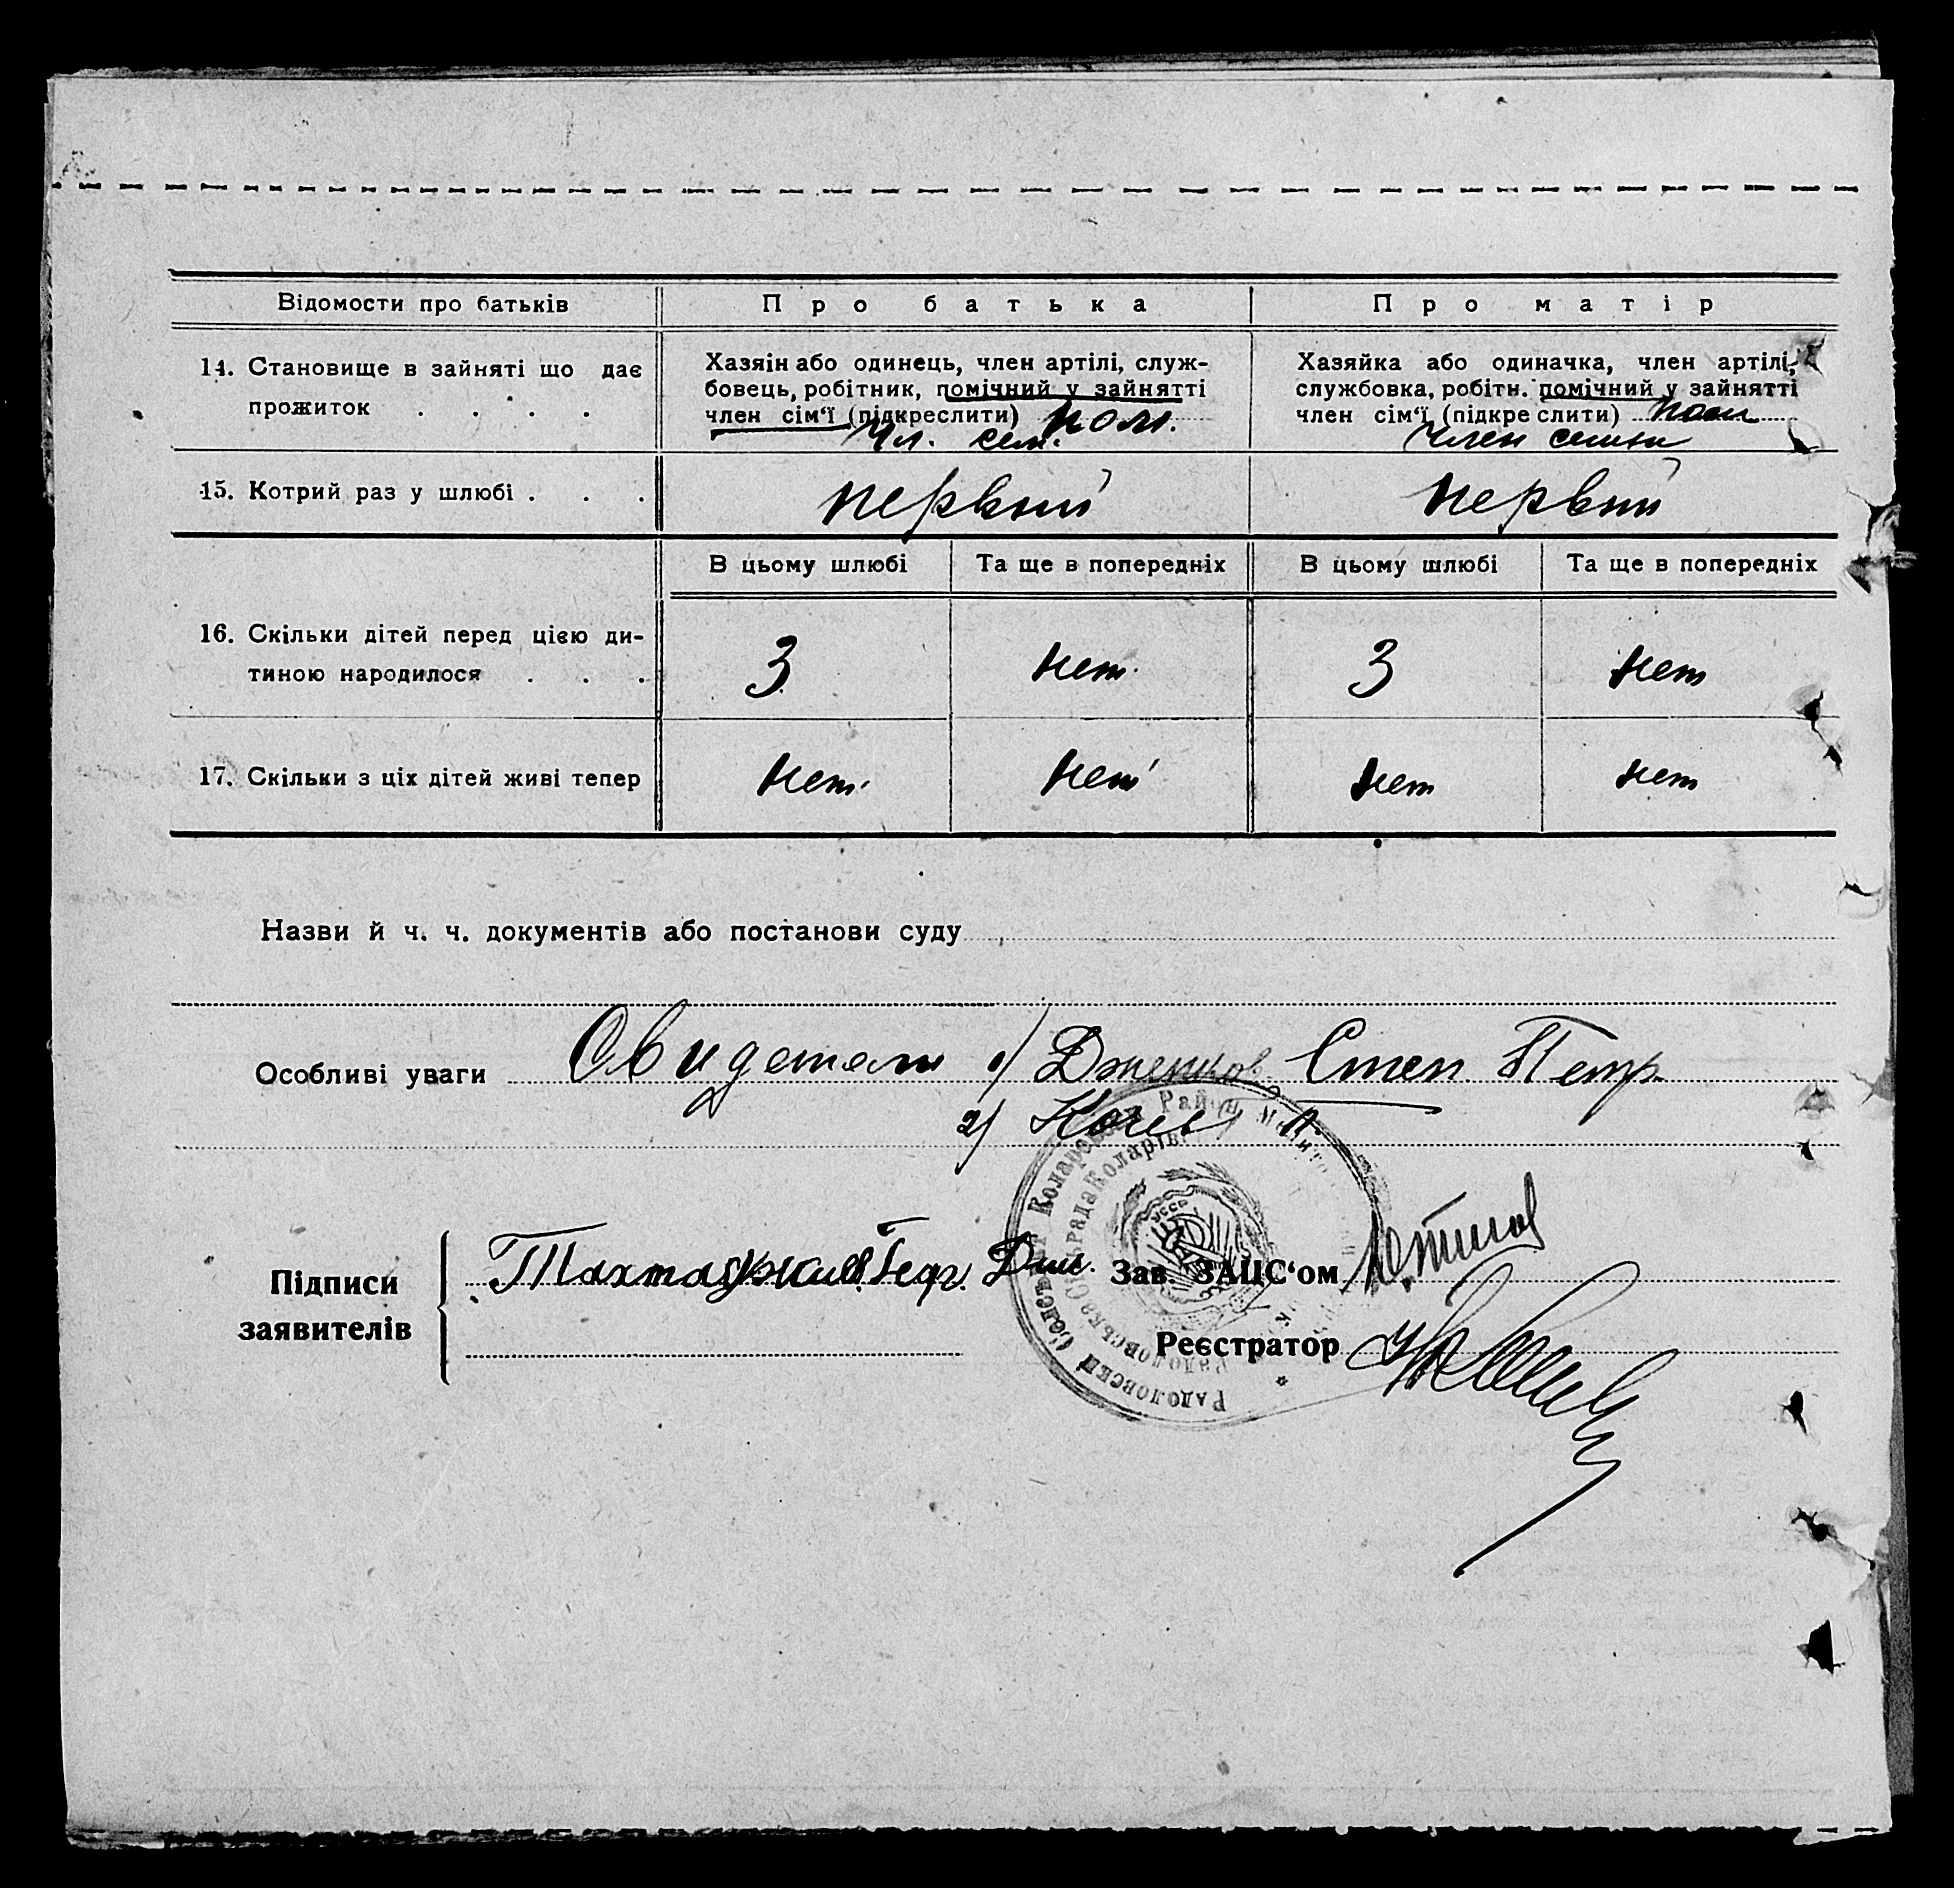 Відомости про батьків Про батька Про матір
14. Становище в зайняті що дає прожиток . . . .
Хазяїн або одинець, член артілі, служ-
бовець, робітник, помічний у зайнятті
член сім'ї (підкреслити) пом.
чл. сем.
Хазяйка або одиначка, член артілі,
службовка, робітн. помічний у зайнятті
член сім'ї (підкреслити) пом
член семьи
15. Котрий раз у шлюбі . . . первый первый
В цьому шлюбі Та ще в попередніх В цьому шлюбі Та ще в попередніх
16. Скільки дітей перед цією ди-
тиною народилося . . . 3 нет 3 нет
17. Скільки з ціх дітей живі тепер нет нет нет нет
Назви й ч. ч. документів або постанови суду
Особливі уваги Свидетели 1) Дженков Степ Петр.
2)
Підписи
заявителів
Тахтаджиев Георг. Дм.
Зав. ЗАЦС‘ом
Реєстратор
Радоловский Сельсовет Коларовск Район Мелито
Радоловська Сільрада Коларів
УССР